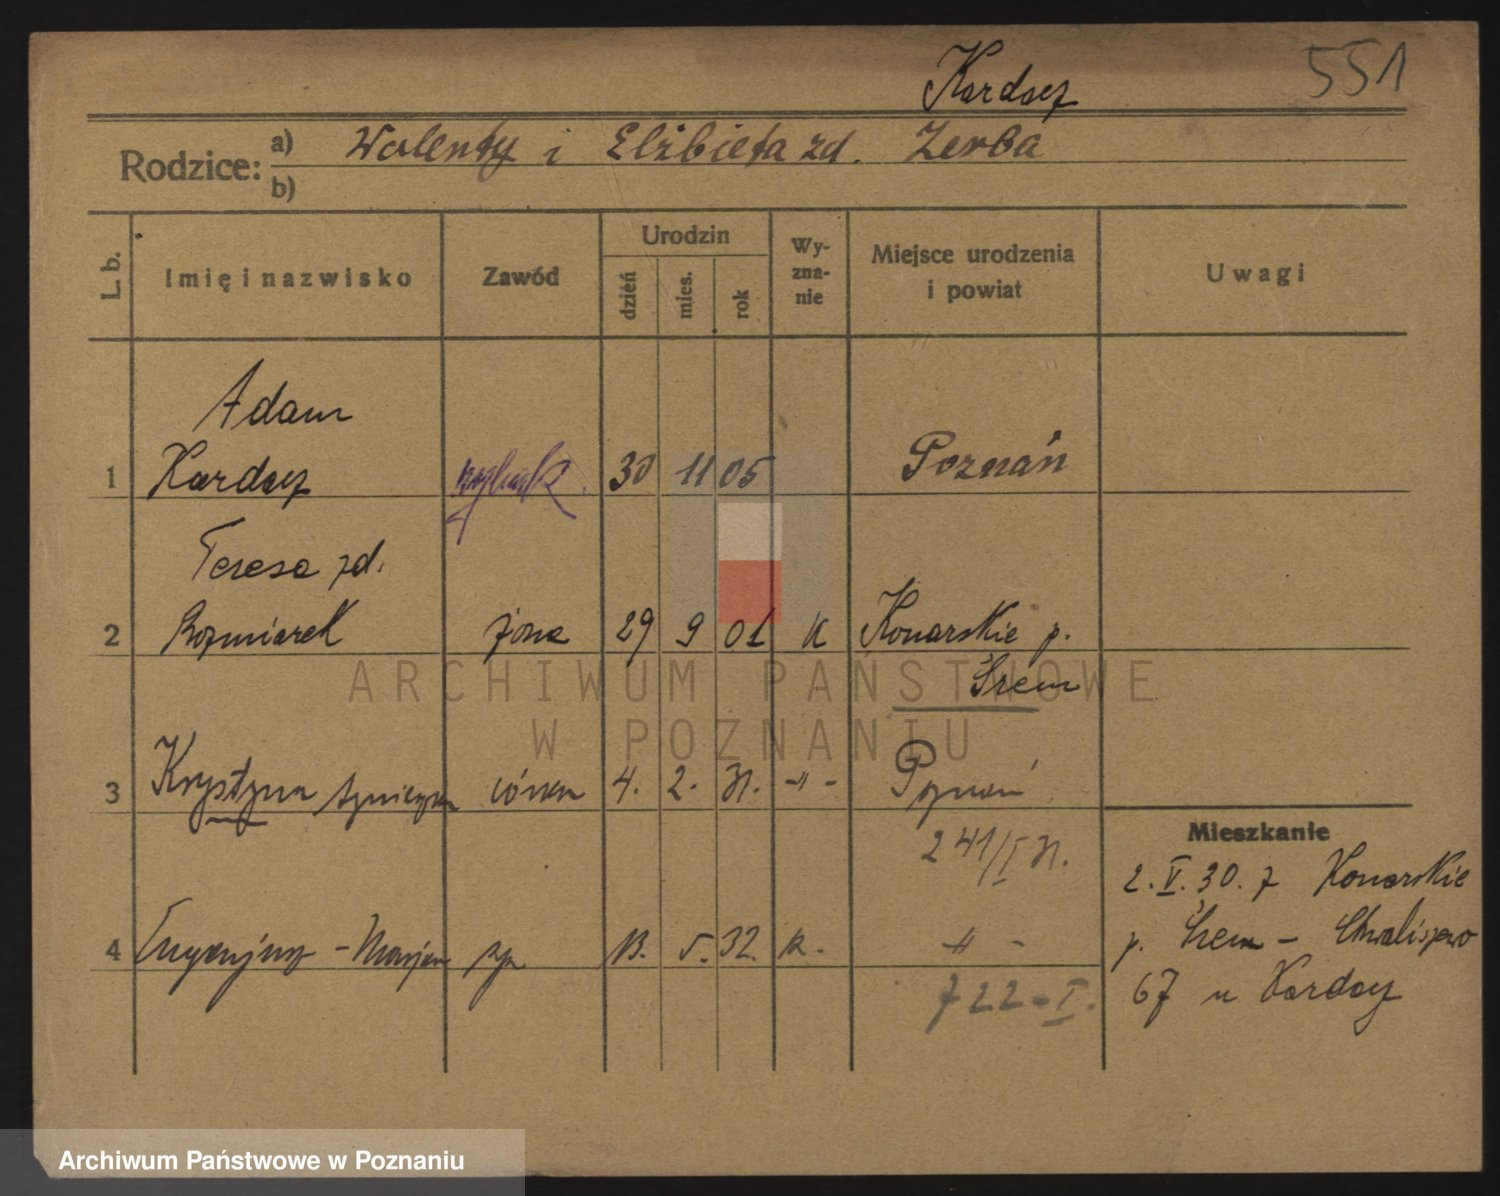 Kardacz
551
Rodzice:
a) Walenty i Elżbieta zd. Zerba
b)
L. b.
Imię i nazwisko
Zawód
Urodzin
dzień
mies.
rok
Wy-
zna-
nie
Miejsce urodzenia
i powiat
Uwagi
Adam
1 Kardacz 30 11 05 Poznań
Teresa zd.
2 Rozmiarek żona 29 9 01 K Konarskie p.
Śrem
3 Krystyna córka 4. 2. 31. -"- Poznań
241/I 31.
Mieszkanie
2.V.30. z Konarskie
p. Śrem - Chwaliszewo
67 u Kardacz
4 Marjan syn 13. 5. 32. K. -"-
722-I.
ARCHIWUM PAŃSTWOWE
W POZNANIU
Archiwum Państwowe w Poznaniu